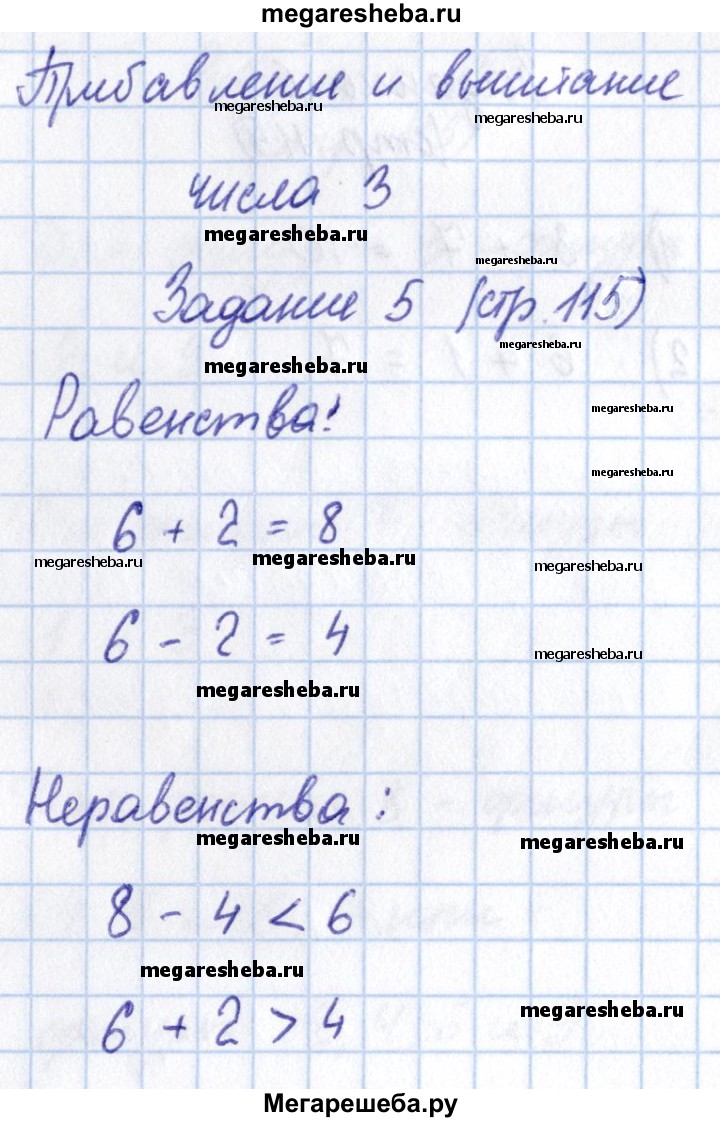 megaresheba.ru
Прибавление и вычитание
megaresheba.ru
megaresheba.ru
числа 3
megaresheba.ru
megaresheba.ru
Задание 5 (стр. 115)
megaresheba.ru
megaresheba.ru
Равенства:
megaresheba.ru
megaresheba.ru
6 + 2 = 8
megaresheba.ru
megaresheba.ru
megaresheba.ru
6 - 2 = 4
megaresheba.ru
megaresheba.ru
Неравенства:
megaresheba.ru
megaresheba.ru
8 - 4 < 6
megaresheba.ru
6 + 2 > 4
megaresheba.ru
Мегарешеба.ру